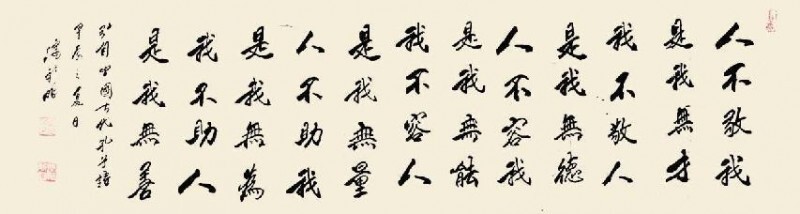 人不敬我
是我無才
我不敬人
是我無德
人不容我
是我無能
我不容人
是我無量
人不助我
是我無為
我不助人
是我無善
國古代孔子語
甲辰之夏日